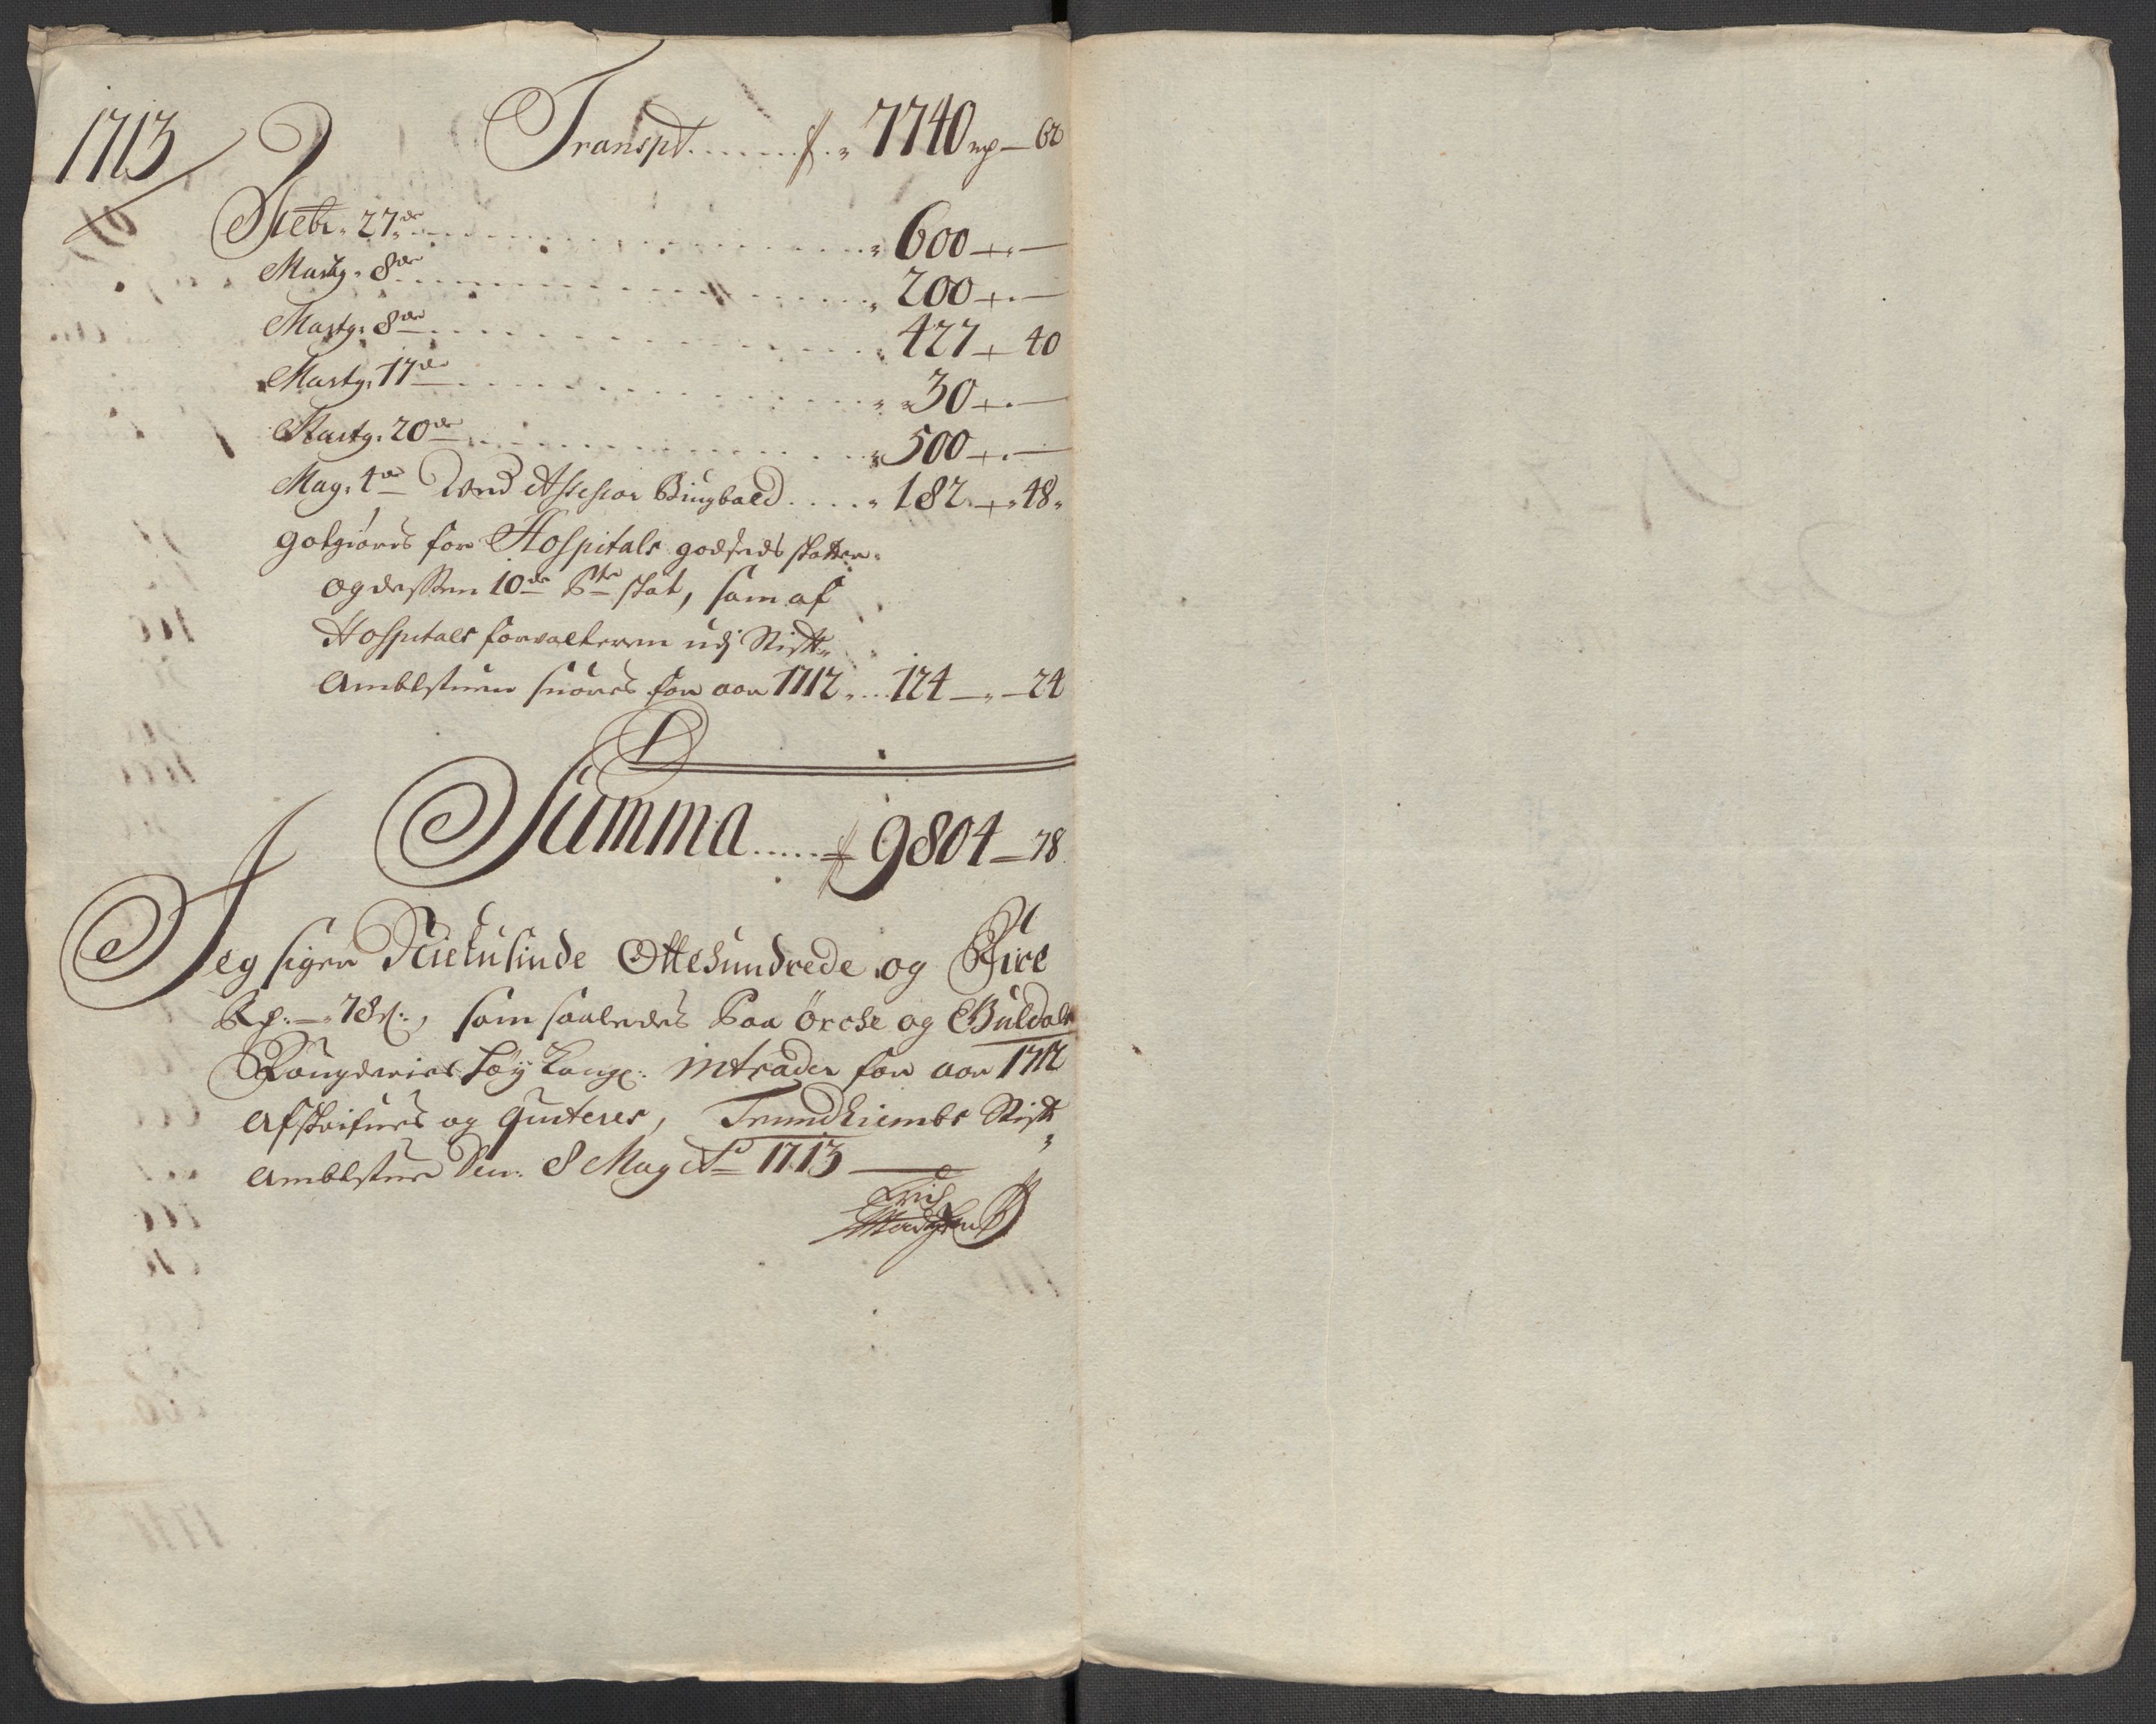 1713
Transpt ....... 7740 rp — 62
Febr. 27de ....... 600 — . —
Marty. 8de ....... 200 — . —
Marty. 8de ....... 427 — 40
Marty. 17de ....... 30 — . —
Marty. 20de ....... 500 — . —
May. 4de Wed Assessor Ringbaed .... 182 — 48
gotgiøres for Hospitals godseds skatter
og dessen 10de Pte skat, som af
Hospitals forvalteren udj Stift
Ambtstuen suores for aar 1712 ... 124 — 24
Summa ..... 9804 — 78
Jeg siger Nietusinde Ottehundrede og Fire
Rd: — 78 s:, som saaledes Paa Örche og Guldals
Fougderies höy Kongl: intrader for aar 1712
afskrifues og quiteres, Trundhiembs Stift
Ambtstue den: 8 May Ao 1713